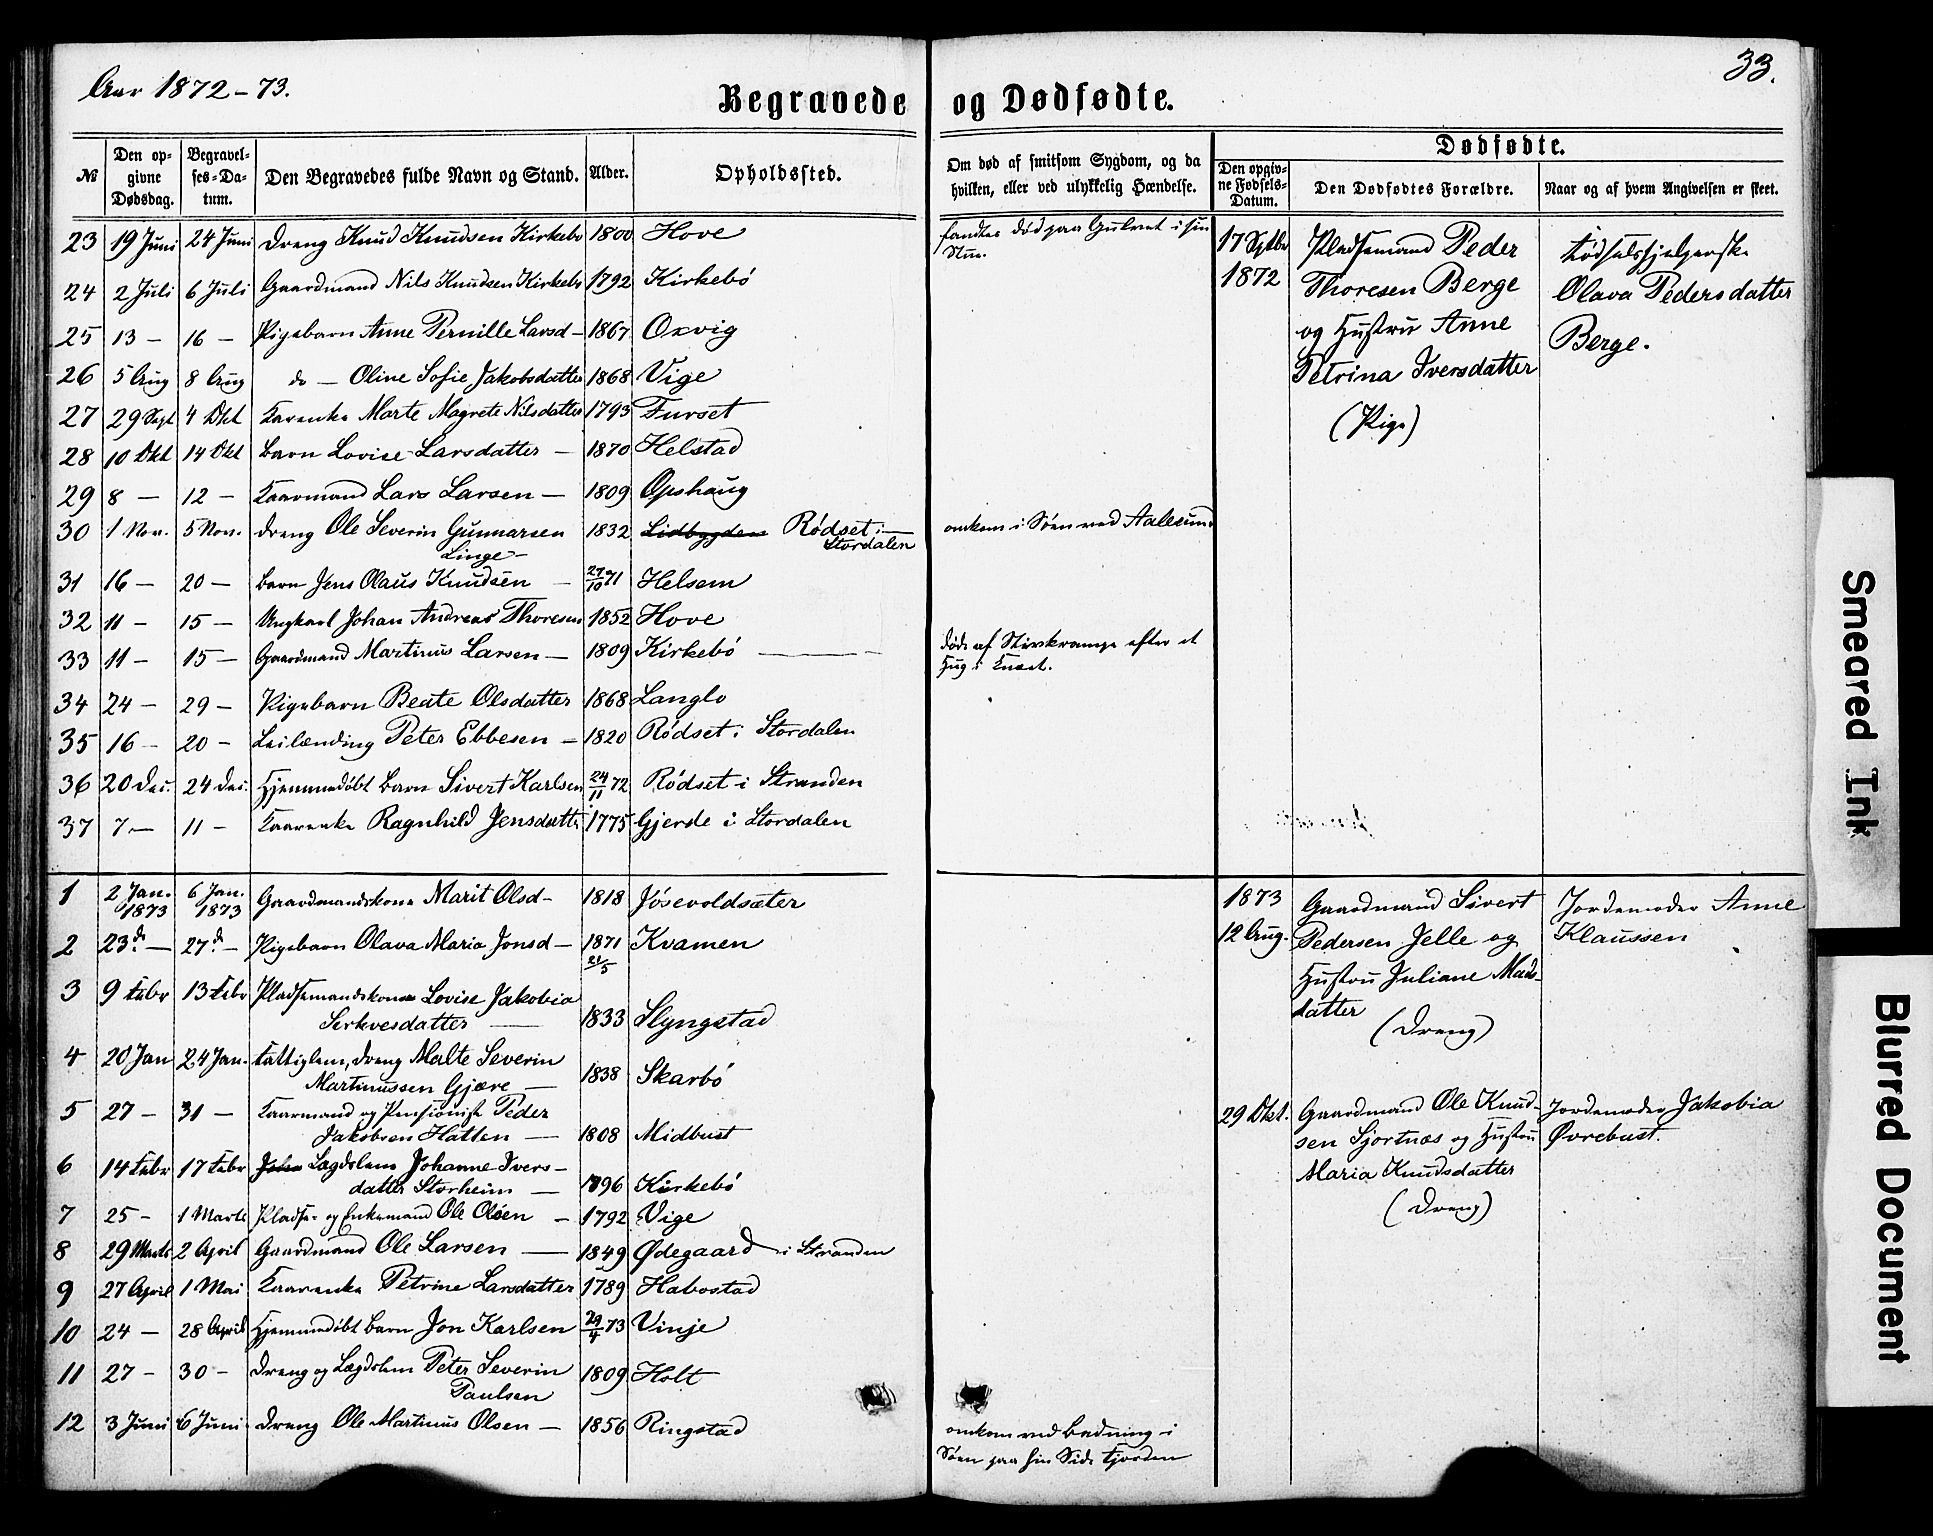 Aar 1872-73.
33.
Begravede og Dødfødte.
№
Den opgivne Dødsdag.
Begravelses-Datum.
Den Begravedes fulde Navn og Stand.
Alder.
Opholdssted.
Om død af smitsom Sygdom, og da hvilken, eller ved ulykkelig Hændelse.
Dødfødte.
Den opgivne Fødsels-Datum.
Den Dødfødtes Forældre.
Naar og af hvem Angivelsen er skeet.
23 19 Juni 24 Juni Dreng Knud Knudsen Kirkebø 1800 Hove fandtes død paa Gulvet i sin
Stue.
24 2 Juli 6 Juli Gaardmand Nils Knudsen Kirkebø 1792 Kirkebø
25 13 - 16 - Pigebarn Anne Pernille Larsd- 1867 Oxvig
26 5 Aug 8 Aug do - Oline Sofie Jakobsdatter 1868 Vige
27 29 Sept 4 Okt Kaarenke Marte Magrete Nilsdatter 1793 Furset
28 10 Okt 14 Okt Barn Lovise Larsdatter - 1870 Helstad
29 8 - 12 - Kaarmand Lars Larsen - 1809 Opshaug
30 1 Nov. 5 Nov. Dreng Ole Severin Gunnarsen 1832 Lidbygden Rødset i
Linge - Stordalen
omkom i Søen ved Aalesund
31 16 - 20 - Barn Jens Olaus Knudsen - 27/10 71 Helsem
32 11 - 15 - Ungkarl Johan Andreas Thoresen 1852 Hove
33 11 - 15 - Gaardmand Martinus Larsen - 1809 Kirkebø
døde af Stivkrampe efter et
Hug i Knæet.
34 24 - 29 - Pigebarn Beate Olsdatter 1868 Langlo
35 16 - 20 - Leilænding Peter Ebbesen - 1820 Rødset i Stordalen
36 20 Dec. 24 Dec. Hjemmedøbt Barn Sivert Karlsen 24/11 72 Rødset i Stranden
37 7 - 11 - Kaarenke Ragnhild Jensdatter 1775 Gjerde i Stordalen
1 2 Jan. 1873 6 Jan. 1873 Gaardmandskone Marit Olsd- 1818 Jøsevoldsæter
2 23 d. - 27 d. - Pigebarn Olava Maria Jonsd - 1871 21/5 Kvamen
3 9 Febr 13 Febr Pladsemandskone Lovise Jakobia
Serkvesdatter - 1833 Slyngstad
4 20 Jan 24 Jan. Fattiglem, Dreng Malte Severin
Martinussen Gjære - 1838 Skarbø
5 27 - 31 - Kaarmand og Pensionist Peder
Jakobsen Hatlen - 1808 Midbust
6 14 Febr 17 Febr Lægdslem Johanne Ivers-
datter Storheim - 1796 Kirkebø
7 25 - 1 Marts Pladse- og Enkemand Ole Olsen - 1792 Vige
8 29 Marts 2 April Gaardmand Ole Larsen - 1849 Ødegaard i Stranden
9 27 April 1 Mai Kaarenke Petrine Larsdatter 1789 Habostad
10 24 - 28 April Hjemmedøbt Barn Jon Karlsen 29/4 73 Vinje
11 27 - 30 - Dreng og Lægdslem Peter Severin 1809 Holt
Paulsen
12 3 Juni 6 Juni Dreng Ole Martinus Olsen - 1856 Ringstad
omkom ved Badning i
Søen paa hin Side Fjorden
17 Septbr
1872
Pladsemand Peder
Thoresen Berge
og Hustru Anne
Petrina Iversdatter
(Pige)
Fødselshjelperske
Olava Pedersdatter
Berge.
1873
12 Aug.
Gaardmand Sivert
Pedersen Jelle og
Hustru Juliane Mads-
datter
(Dreng)
Jordemoder Anne
Klaussen
29 Okt.
Gaardmand Ole Knud-
sen Sjortnæs og Hustru
Maria Knudsdatter
(Dreng)
Jordemoder Jakobia
Øvrebust.
Smeared Ink
Blurred Document